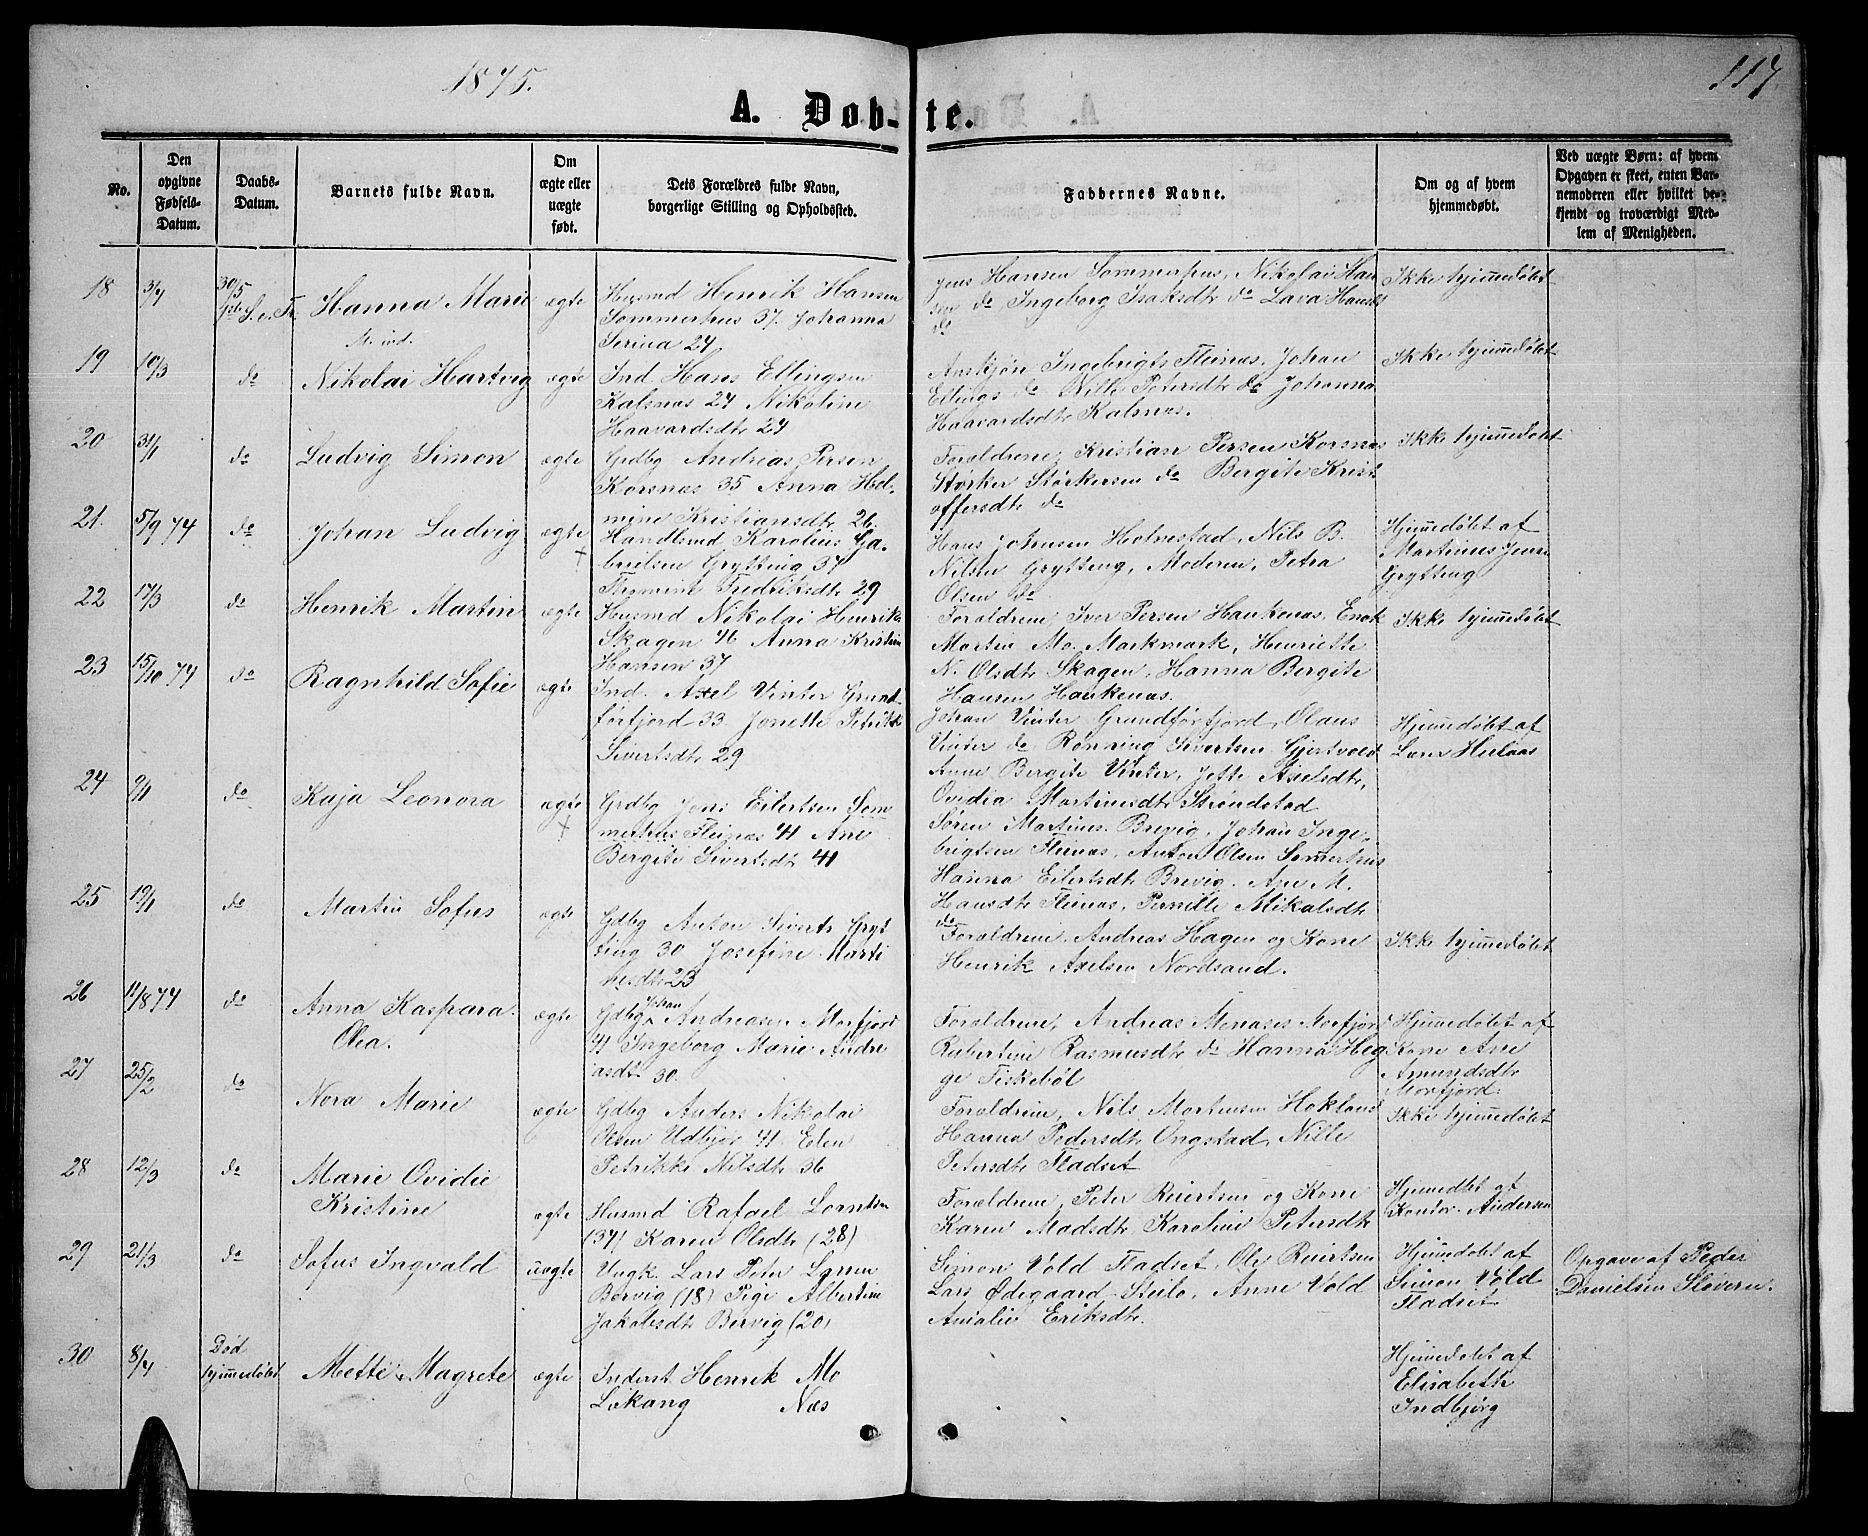 1875.
117
A. Døb-te.
No.
Den
opgivne
Fødsels-
Datum.
Daabs-
Datum.
Barnets fulde Navn.
Om
ægte eller
uægte
født.
Dets Forældres fulde Navn,
borgerlige Stilling og Opholdssted.
Faddernes Navne.
Om og af hvem
hjemmedøbt.
Ved uægte Børn: af hvem
Opgaven er skeet, enten Bar-
nemoderen eller hvilket be-
kjendt og troværdigt Med-
lem af Menigheden.
18 3/4 30/5 Hanna Marie ægte
Husmd Henrik Hansen
Sommerhus 37. Johanna
Serina 24
Jens Hansen Sommerhus, Nikolai Han
sen do, Ingeborg Isaksdtr do Lava Hansdtr
do
Ikke hjemmedøbt
M. ind.
19 10/3 do Nikolai Hartvig ægte
Ind Hans Ellingsen
Kalsnes 24 Nikoline
Haavardsdtr 24
Anskjøn Ingebrigts Fleinæs, Johan
Ellings do Nille Petersdtr do Johanna
Haavardsdtr Kalsnes.
Ikke hjemmedøbt
20 31/1 do Ludvig Simon ægte
Grdbg Andreas Persen
Korsnæs 35 Anna Hel-
mine Kristiansdtr 26.
Forældrene, Kristian Persen Korsnæs
Størker Størkersen do Bergite Krist
offersdtr do
Ikke hjemmedøbt
21. 5/9 74 do Johan Ludvig ægte
+
Handlsmd Karolius Ga-
brielsen Grytting 37
Thomine Fredriksdtr 29
Hans Johnsen Holmestad, Nils B.
Nilsen Grytting, Moderen, Petra
Olsen do
Hjemmedøbt af
Martinus Jensen
Grytting
22 17/3 do Henrik Martin ægte
Husmd Nikolai Henriks
Skagen 41. Anna Kristine
Hansen 37
Forældrene, Iver Persen Haukenæs, Enok
Martin Mo, Markmark, Henriette
N. Olsdtr Skagen, Hanna Bergite
Hansen Haukenæs.
Ikke hjemmedøbt
23 15/10 74 do Ragnhild Sofie ægte
Ind. Axel Vinter Grund-
førfjord 33. Jonette Petrikke
Sivertsdtr 29
Johan Vinter Grundførfjord, Olaus
Vinter do Rønning Sivertsen Gjertvold
Anne Bergite Vinter, Jette Axelsdtr,
Ovidia Martinesdtr Strøndstad
Hjemmedøbt af
24 9/1 do Kaja Leonora ægte
+
Grdbg Jens Eilertsen Som-
merhus Fleinæs 41 Ane
Bergite Sivertsdtr 41
Søren Martines. Brevig, Johan Inge-
brigtsen Fleinæs, Anton Olsen Sommerhus
Hanna Eilertsdtr Brevig. Ane M.
Hansdtr Fleinæs, Pernille Mikalsdtr
do
25 19/1 do Martin Sofus ægte
Gdbg Anton Siverts Gryt
ting 30 Josefine Marti
nesdtr 23
Forældrene, Andreas Hagen og Kone
Henrik Axelsen Nordsand.
Ikke hjemmedøbt
26 11/8 74 do Anna Kaspara
Olea. ægte
Gdbg Johan Andreasen Morfjord
41 Ingeborg Marie Andre
asdtr 30.
Forældrene, Andreas Menases Morfjord
Rubertine Rasmusdtr do Hanna Heg
ge Fiskebøl
Hjemmedøbt af
Kone Ane
Amundsdtr
Morfjord.
27 25/2 do Nora Marie ægte
Gdbg Anders Nikolai
Olsen Udbjør 41. Elen
Petrikke Nilsdtr 36
Forældrene, Nils Mortensen Hokland
Hanna Pedersdtr Ongstad, Nille
Petersdtr Fladset
Ikke hjemmedøbt
28 12/3 do Marie Ovidie
Kristine ægte
Husmd Rafael Lorntsen
(37) Karen Olsdtr (28)
Forældrene, Peter Reiertsen og Kone
Karen Madsdtr Karoline Petersdtr
Hjemmedbt af
Kontor. Andersen
29 21/3 do Sofus Ingvald uægte
Ungk. Lars Peter Søren
Bervig (18) Pige Albertine
Jakobsdtr Bervig (20)
Simon Vold Fladset, Ole Reiertsen
Lars Ødegaard Steilo, Anne Vold
Amalie Eriksdtr.
Hjemmedøbt af
Simon Vold
Fladset
Opgave af Peder
Danielsen Sloveren.
30 8/4 Død
hjemmedøbt Mette Magrete ægte
Inderst Henrik Mo
Lokang Næs
Hjemmedøbt af
Elisabeth
Indbjørg